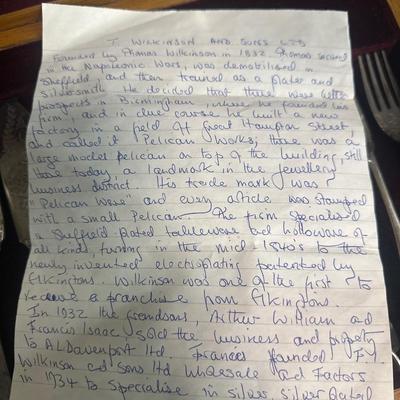 T. WILKINSON AND SONS LTD
Formed by Thomas Wilkinson in 1832 Thomas served
in the Napoleonic Wars, was demobilised in
Sheffield, and then trained as a plater and
silversmith. He decided that there were better
prospects in Birmingham, where he founded his
firm, and in due course he built a new
factory in a field off Great Hampton Street,
and called it Pelican Works; there was a
large model pelican on top of the building, still
there today, a landmark in the jewellery
business district. His trade mark was
"Pelican Ware" and every article was stamped
with a small Pelican. The firm specialised
in Sheffield plated tableware and holloware of
all kinds, turning in the mid 1840's to the
newly invented electroplating patented by
Elkingtons. Wilkinson was one of the first to
receive a franchise from Elkingtons.
In 1932 the grandsons, Arthur William and
Francis Isaac, sold the business and property
to A.L Davenport Ltd. Frances founded F.I.
Wilkinson and Sons Ltd Wholesale and Factors
in 1934 to specialise in silver, silver plated